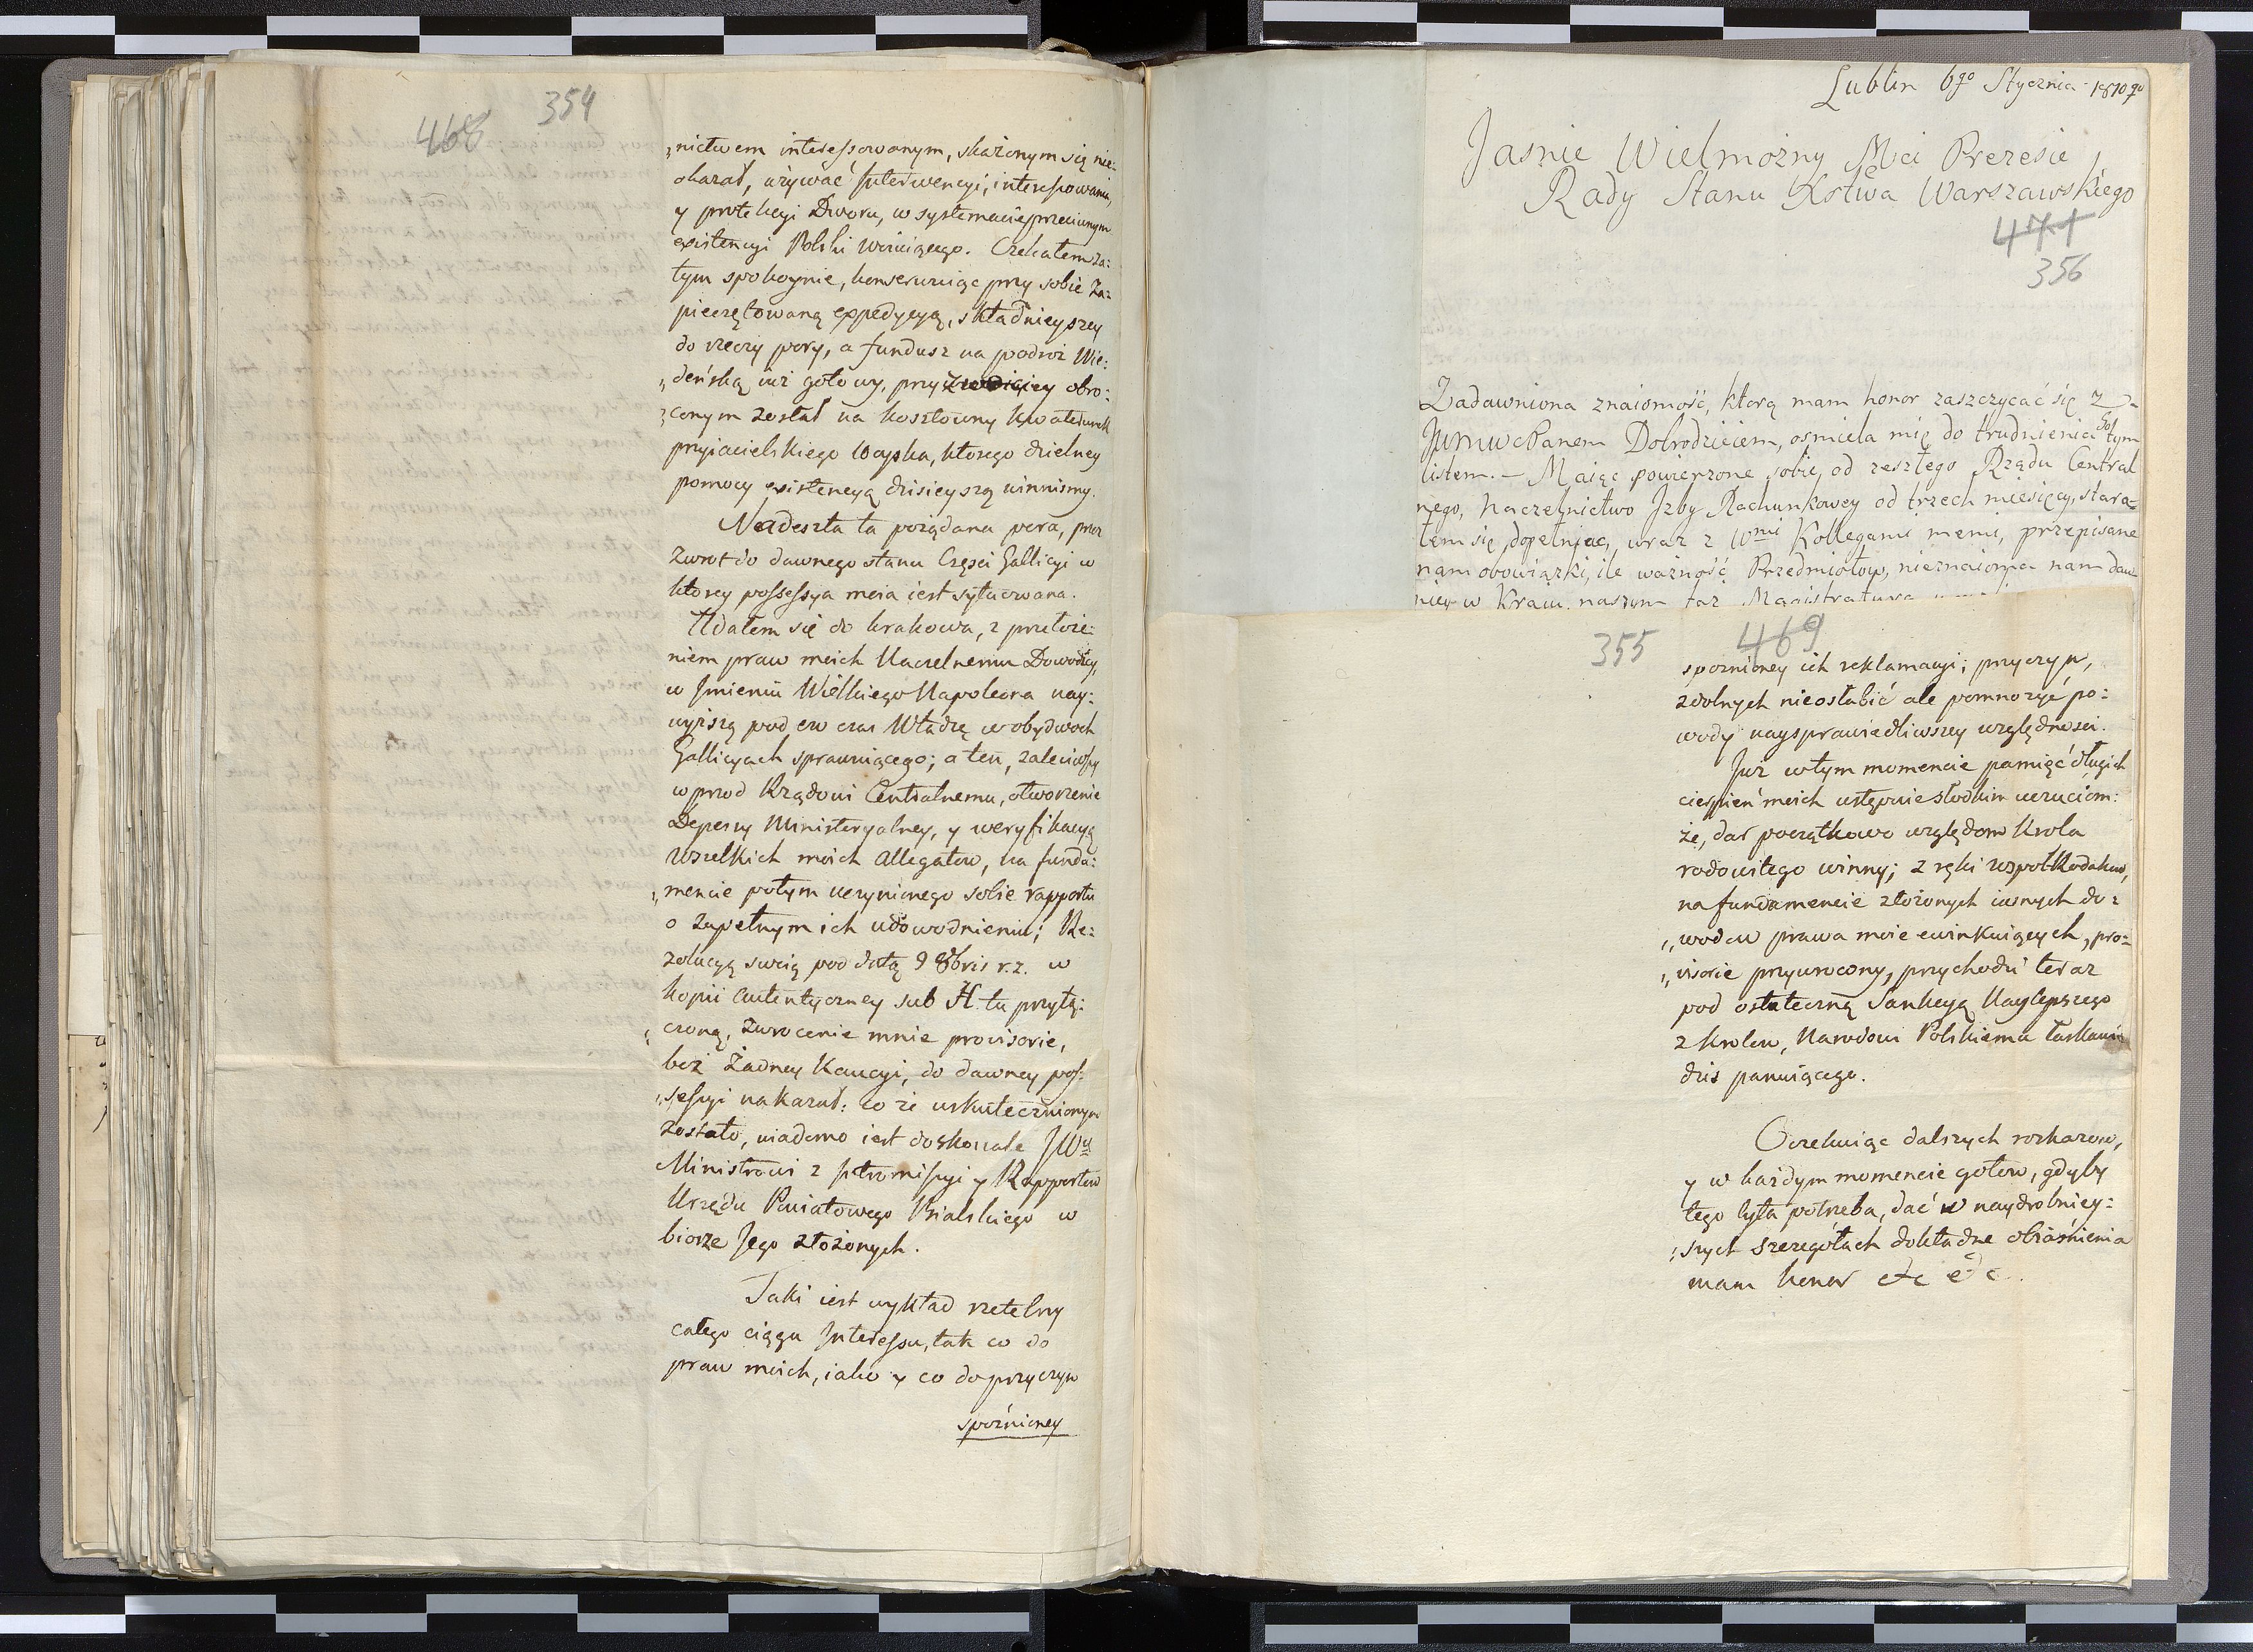 354
468
„nictwem interessowanym, skażonym się nie:
okazał, używać Interwencyi, interessowania,
y protekcyi Dworu, w systemacie przeciwnym
existencyi Polski Czekałem za:
tym spokoynie, konserwuiąc przy sobie za:
pieczętowaną expedycyą, składnieyszey
do rzeczy pory, a fundusz na podroż Wie:
„deńską iuż gotowy, obro:
„conym został na kosztowny kwaterunek
przyiacielskiego Woyska, ktorego dzielney
pomocy existencyą dzisieyszą winnismy.
Nadeszła ta pożądana pora, przez
zwrot do dawnego stanu Części Gallicyi w
ktorey possessya moia iest sytuowana.
Udałem się do Krakowa, z przełoże:
niem praw moich Naczelnemu Dowodcy,
w Imieniu Wielkiego Napoleona nay:
wyższą pod ow czas Władzę w obydwoch
Gallicyach sprawuiącego; a ten, zaleciwszy
wprzod Rządowi Centralnemu, otworzenie
Depeszy Ministeryalney, y weryfikacyą
wszelkich moich Allegatow, na funda:
„mencie potym uczynionego sobie rapportu
o zupełnym ich udowodnieniu; Re:
zolucyą swoią pod datą 9 8bris r.z. w
kopii autentyczney sub H. tu przyłą:
„czoną, zwrocenie mnie provisorie,
bez żadney Kaucyi, do dawney pos:
„sessyi nakazał: co że uskutecznionym
zostało, wiadomo iest doskonale JWu
Ministrowi z Intromissyi y Rapportow
Urzędu Powiatowego Bialskiego w
biorze Jego złożonych.
Taki iest wykład rzetelny
całego ciągu Interessu, tak co do
praw moich, iako y co do przyczyn
spoźnioney
Lublin 6go Stycznia 1810go
Jasnie Wielmożny Mci Prezesie
Rady Stanu Xstwa Warszawskiego
471
356
Zadawniona znaiomość, ktorą mam honor zaszczycać się z
Panem Dobrodzieiem, osmiela mię do trudnienia Go tym
listem. – Maiąc powierzone sobie, od zeszłego Rządu Central
nego, Naczelnictwo Izby Rachunkowey od trzech miesięcy, stara=
łem się dopełniac, wraz z Wmi Kollegami memi, przepisane
nam obowiązki, ile ważność Przedmiotow, nieznaioma nam daw
niey w Kraiu naszym taż Magistratura
355
469
spoznioney ich reklamacyi; przyczyn,
zdolnych nieosłabić ale pomnożyć po:
wody naysprawiedliwszey względności.
Już w tym momencie pamięć długich
cierpień moich ustępuie słodkim uczuciom:
że, dar początkowo względom Krola
rodowitego winny; z ręki wspoł-Rodakow,
na fundamencie złożonych iasnych do:
„wodow prawa moie ewinkuiących, pro:
„visorie przywrocony, przychodzi teraz
pod ostateczną Sankcyą Naylepszego
z Krolow, Narodowi Polskiemu łaskawie
dzis panuiącego.
Oczekuiąc dalszych rozkazow,
y w każdym momencie gotow, gdyby
tego była potrzeba, dać w naydrobniey:
„szych szczegółach dokładne obiaśnienia
mam honor etc etc.